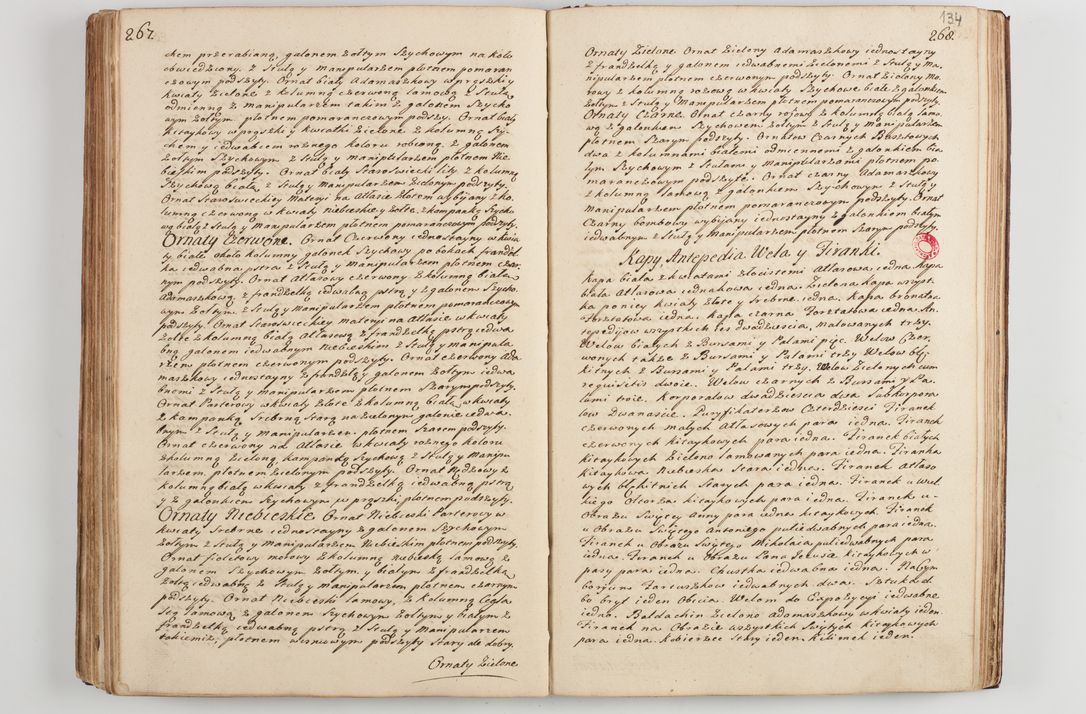 267.
chem przerabianą, galonem żołtym Szychowym na koło
obwiedziony z Stułą y Manipularzem płotnem pomaran
czowym podszyty. Ornat biały Adamaszkowy w prążki y
kwiaty Zielone z kolumną czerwoną lamową z Stułą
odmienną z Manipularzem takim z galonem Szycho
wym żołtym, płotnem pomaranczowym podszy. Ornat biały
kitaykowy w prązki y kwiatki Zielone z kolumną Szy-
chem y iedwabiem roznego koloru robioną, z galonem
żołtym Szychowym z Stułą y Manipularzem płotnem Nie
bieskim podszyty. Ornat biały Staroswiecki lity z kolumną
Szychową białą z Stułą y Manipularzem Zielonym podszyty.
Ornat Staroswieckiey Materyi na Atłasie złotem wybijany z ko
lumną czerwoną w kwiaty niebieskie y żołte, z kampanką Szycho
wą białą z Stułą y Manipularzem płotnem pomaranczowym podszyty.
Ornaty Czerwone. Ornat Czerwony iednostayny w kwia
ty białe około kolumny galonek Szychowy po bokach frandzel
ka iedwabna pstra z Stułą y Manipularzem płotnem czar
nym podszyty. Ornat Atłasowy czerwony z kolumną białą
Adamaszkową, z frandzelką iedwabną pstrą y z galonem Szycho
wym żołtym, z Stułą y Manipularzem płotnem pomaranczowym
podszyty. Ornat Staroswieckiey materyi na Atłasie w kwiaty
żołte z kolumną białą Atłasową z frandzelką pstrą iedwa
bną galonem iedwabnym Niebieskim z Stułą y Manipula
rzem płotnem czerwonym podszyty. Ornat czerwony Ada
maszkowy iednostayny z frandzlą y galonem żołtym iedwa
bnemi z Stułą y Manipularzem płotnem Szarym podszyty.
Ornat Parterowy w kwiaty złote z kolumną białą w kwiaty
z kampanką Srebrną Starą na zielonym galonie iedwa-
bnym z Stułą y Manipularzem płotnem Szarem podszyty.
Ornat czerwony na Atłasie w kwiaty roznego koloru
z kolumną Zieloną kampanką Szychową z Stułą y Manipu
larzem, płotnem zielonym podszyty. Ornat Rydzowy z
kolumną białą w kwiaty z frandzelką iedwabną pstrą
y z galonkiem Szychowym w prązki, płotnem podszyty.
Ornaty Niebieskie Ornat Niebieski Parterowy w
kwiaty Srebrne iednostayny z galonem Szychowym
żołtym z Stułą y Manipularzem Niebieskim płotnem podszyty
Ornat fioletowy morowy z kolumną niebieską lamową z
galonem Szychowym żołtym, y białym z frandzelką
żołtą iedwabną z Stułą y manipularzem płotnem czarnym
podszyty. Ornat Niebieski lamowy, z kolumną Cegla
stą lamową z galonem Szychowym żołtym y białym z
frandzelką iedwabną pstrą z Stułą y Manipularzem
takimiż, płotnem wisniowym podszyty Stary ale dobry.
Ornaty Zielone
134
268.
Ornaty Zielone. Ornat Zielony Adamaszkowy iednostayny
z frandzelką y galonem iedwabnemi Zielonemi z Stułą y Ma
nipularzem płotnem czerwonym podszyty. Ornat Zielony Mo-
rowy z kolumną rozową w kwiaty Szychowe białe z galonkiem
żołtym z Stułą y Manipularzem płotnem pomaranczowym podszyty.
Ornaty Czarne. Ornat czarny ryzowy z kolumną białą lamo
wą z galonkiem Szychowem żołtym z Stułą y Manipularzem
płotnem Szarym podszyty. Ornatow Czarnych Bursztowych
dwa z kolumnami białemi odmiennemi z galonkiem bia
łym Szychowym z Stułami y Manipularzami płotnem po
maranczowym podszyte. Ornat czarny Adamaszkowy
z kolumną Siarkową z galonkiem Szychowym z Stułą y
Manipularzem płotnem pomaranczowym podszyty. Ornat
Czarny bombowy wybijany iednostayny z galonkiem białym
iedwabnym z Stułą y Manipularzem płotnem Szarym podszyty.
Kapy Antepedia Wela y Firanki.
Kapa biała z kwiatami złocistemi Atłasowa iedna. Kapa
biała Atłasowa iednakowa iedna. Zielona kapa wszyst
ka poniey kwiaty złote y Srebrne iedna. Kapa bronatna
Tersztatowa iedna. Kapa czarna Tersztatowa iedna. An-
tepedijow wszystkich iest dwadziescia, malowanych trzy.
Welow białych z Bursami y Palami pięć. Welow Czer
wonych także z Bursami y Palami trzy. Welow błę
kitnych z Bursami y Palami trzy. Welow Zielonych cum
requisitis dwoie. Welow czarnych z Bursami y Pa
lami troie. Korporałow dwadziescia dwa Subkorpora
łow Dwanascie. Puryfikaterzow Czterdziesci Firanek
czerwonych małych Atłasowych para iedna. Firanek
czerwonych kitaykowych para iedna. Firanek białych
kitaykowych Zielono lamowanych para iedna. Firanka
kitaykowa Niebieska Stara iedna. Firanek Atłaso
wych błękitnych Starych para iedna. Firanek u Wiel
kiego Ołtarza kitaykowych para iedna. Firanek u-
Obrazu Swiętey Anny para iedna kitaykowych. Firanek
u Obrazu Swiętego Antoniego pułiedwabnych para iedna.
Firanek u Obrazu Swiętego Mikołaia pułiedwabnych para
iedna. Firanek u Obrazu Pana Jezusa kitaykowych w
pasy para iedna. Chustka iedwabna iedna. Na Cym
boryum Fartuszkow iedwabnych dwa. Sztuka do
bo bryt ieden Obicia. Welam do Expozycyi iedwabne
iedno. Baldachin Zielono adamaszkowy w kwiaty ieden.
Firanek na Obrazie wszystkich Swiętych kitaykowych
para iedna. Kobierzec Stary ieden. Kilimek ieden.